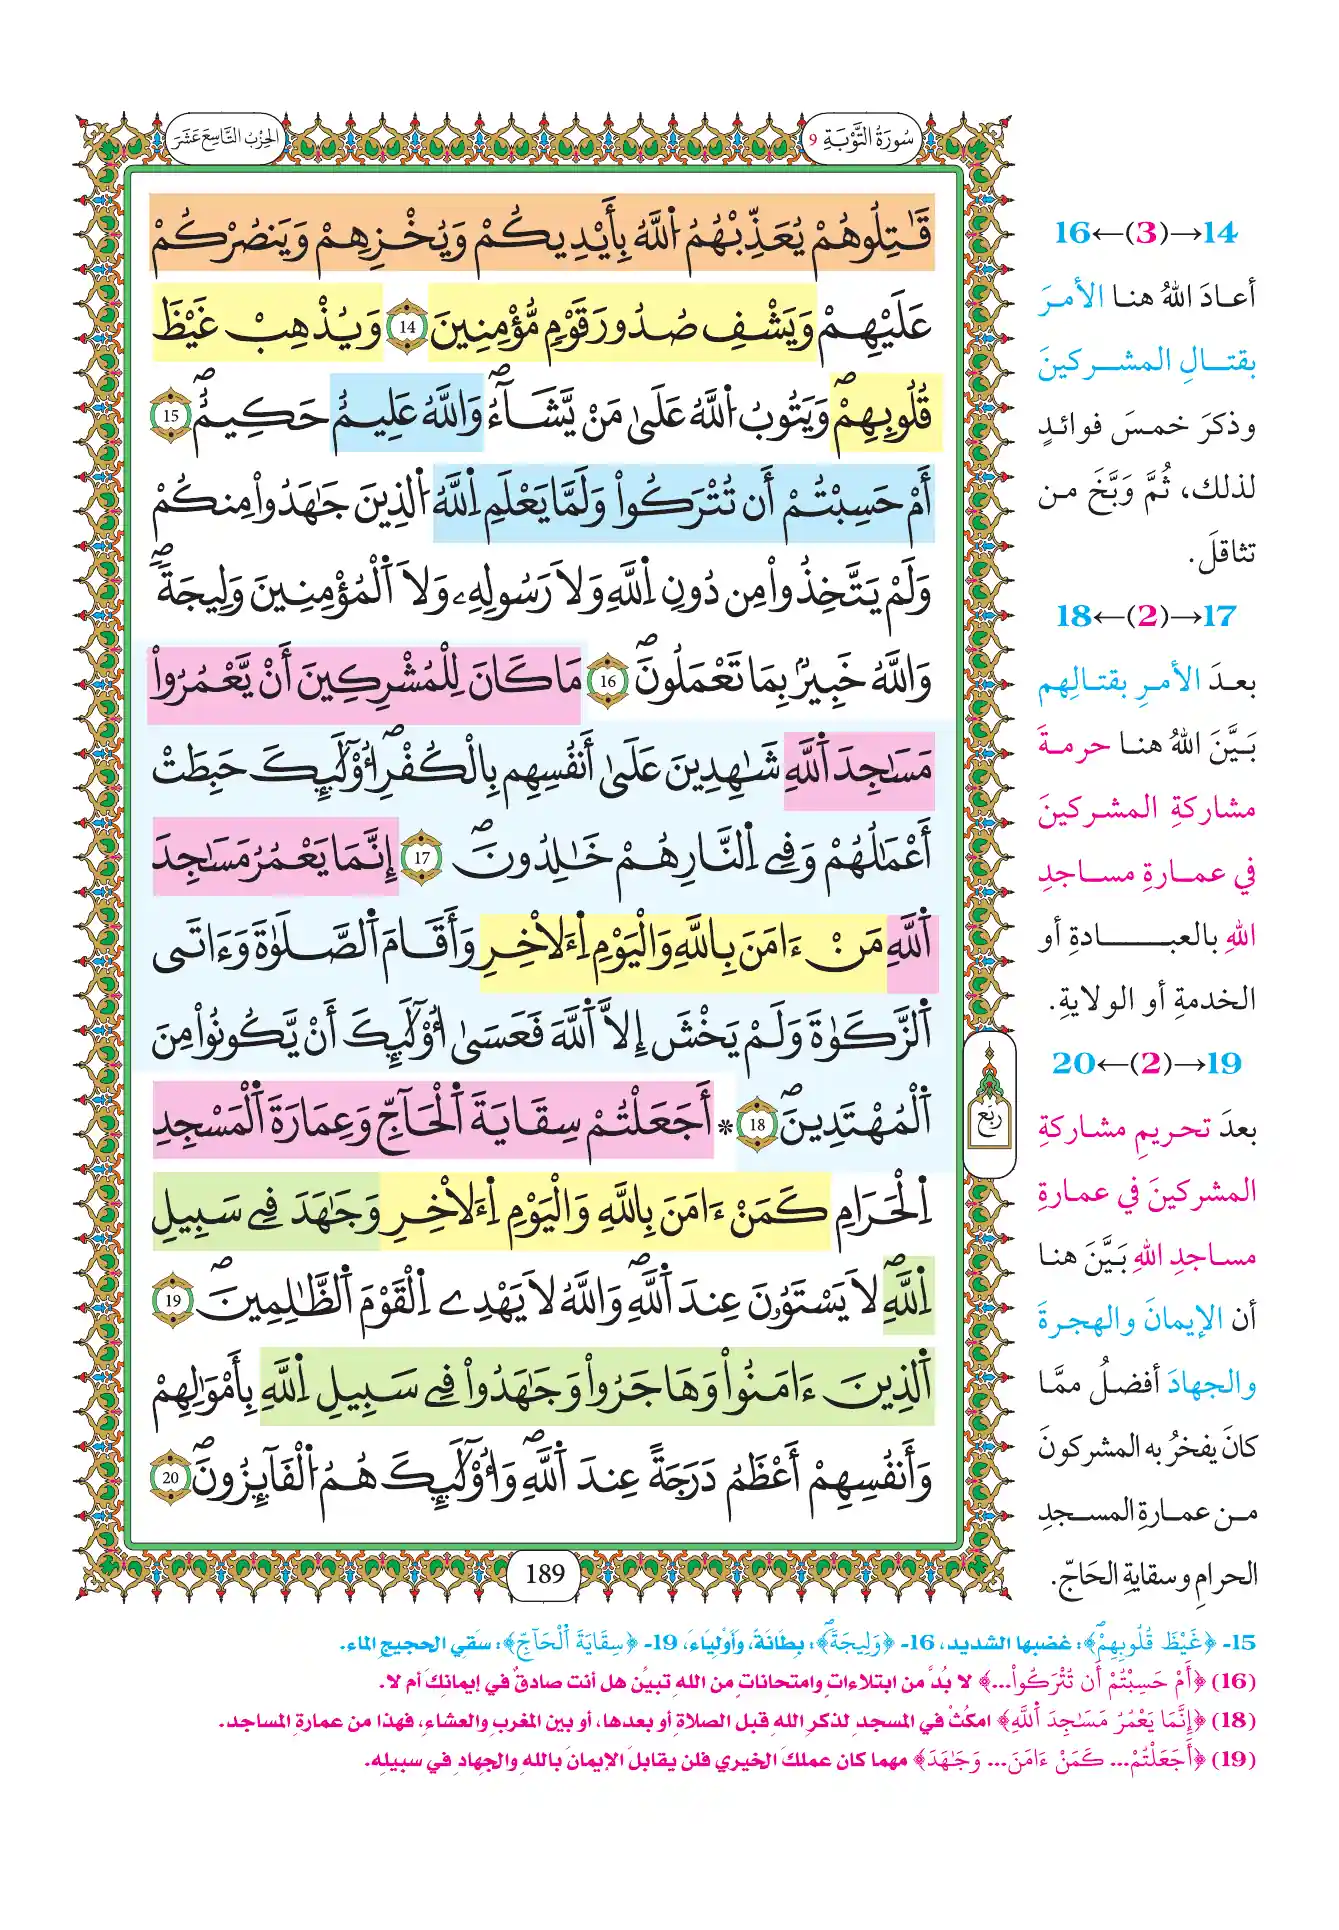 سُورَةُ التَّوْبَةِ 9
الحِزْبُ التَّاسِعَ عَشَرَ
قَٰتِلُوهُمْ يُعَذِّبْهُمُ اُ۬للَّهُ بِأَيْدِيكُمْ وَيُخْزِهِمْ وَيَنصُرْكُمْ
عَلَيْهِمْ وَيَشْفِ صُدُورَ قَوْمٖ مُّؤْمِنِينَ 14 وَيُذْهِبْ غَيْظَ
قُلُوبِهِمْۖ وَيَتُوبُ اُ۬للَّهُ عَلَىٰ مَنْ يَّشَآءُۖ وَاللَّهُ عَلِيمٌ حَكِيمٌۖ 15
أَمْ حَسِبْتُمْ أَن تُتْرَكُواْ وَلَمَّا يَعْلَمِ اِ۬للَّهُ اُ۬لذِينَ جَٰهَدُواْ مِنكُمْ
وَلَمْ يَتَّخِذُواْ مِن دُونِ اِ۬للَّهِ وَلَا رَسُولِهِۦ وَلَا اَ۬لْمُؤْمِنِينَ وَلِيجَةٗۖ
وَاللَّهُ خَبِيرُۢ بِمَا تَعْمَلُونَۖ 16 مَا كَانَ لِلْمُشْرِكِينَ أَنْ يَّعْمُرُواْ
مَسَٰجِدَ اَ۬للَّهِ شَٰهِدِينَ عَلَىٰ أَنفُسِهِم بِالْكُفْرِۖ أُوْلَٰٓئِكَ حَبِطَتْ
أَعْمَٰلُهُمْ وَفِے اِ۬لنَّارِ هُمْ خَٰلِدُونَۖ 17 إِنَّمَا يَعْمُرُ مَسَٰجِدَ
اَ۬للَّهِ مَنْ ءَامَنَ بِاللَّهِ وَالْيَوْمِ اِ۬ءَلَاخِرِ وَأَقَامَ اَ۬لصَّلَوٰةَ وَءَاتَى
اَ۬لزَّكَوٰةَ وَلَمْ يَخْشَ إِلَّا اَ۬للَّهَ فَعَسَىٰ أُوْلَٰٓئِكَ أَنْ يَّكُونُواْ مِنَ
اَ۬لْمُهْتَدِينَۖ 18 * أَجَعَلْتُمْ سِقَايَةَ اَ۬لْحَآجِّ وَعِمَارَةَ اَ۬لْمَسْجِدِ
اِ۬لْحَرَامِ كَمَنْ ءَامَنَ بِاللَّهِ وَالْيَوْمِ اِ۬ءَلَاخِرِ وَجَٰهَدَ فِے سَبِيلِ
اِ۬للَّهِۖ لَا يَسْتَوُۥنَ عِندَ اَ۬للَّهِۖ وَاللَّهُ لَا يَهْدِے اِ۬لْقَوْمَ اَ۬لظَّٰلِمِينَۖ 19
اَ۬لذِينَ ءَامَنُواْ وَهَاجَرُواْ وَجَٰهَدُواْ فِے سَبِيلِ اِ۬للَّهِ بِأَمْوَٰلِهِمْ
وَأَنفُسِهِمْ أَعْظَمُ دَرَجَةً عِندَ اَ۬للَّهِۖ وَأُوْلَٰٓئِكَ هُمُ اُ۬لْفَآئِزُونَۖ 20
رُبُع
189
14→(3)←16
أعـادَ اللهُ هنـا الأمـرَ
بقتـالِ المشـركينَ
وذكرَ خمسَ فوائـدٍ
لذلك، ثُمَّ وَبَّخَ مـن
تثاقلَ.
17→(2)←18
بعـدَ الأمـرِ بقتـالِهم
بَـيَّنَ اللهُ هنـا حرمـةَ
مشاركةِ المشركينَ
في عمـارةِ مسـاجدِ
اللهِ بالعبـــادةِ أو
الخدمةِ أو الولايةِ.
19→(2)←20
بعدَ تحريمِ مشاركةِ
المشركينَ في عمارةِ
مساجدِ اللهِ بَيَّنَ هنا
أن الإيمانَ والهجرةَ
والجهادَ أفضلُ ممَّا
كانَ يفخرُ به المشركونَ
مـن عمارةِ المسـجدِ
الحرامِ وسقايةِ الحَاجّ.
15- ﴿غَيْظَ قُلُوبِهِمْۖ﴾: غضبها الشديد، 16- ﴿وَلِيجَةٗۖ﴾: بِطَانَةً، وأَوْلِيَاءَ، 19- ﴿سِقَايَةَ اَ۬لْحَآجِّ﴾: سَقي الحجيج الماء.
(16) ﴿أَمْ حَسِبْتُمْ أَن تُتْرَكُواْ...﴾ لا بُدَّ من ابتلاءاتٍ وامتحاناتٍ من اللهِ تبيّن هل أنت صادقٌ في إيمانِكَ أم لا.
(18) ﴿إِنَّمَا يَعْمُرُ مَسَٰجِدَ اَ۬للَّهِ﴾ امكُثْ في المسجدِ لذكرِ اللهِ قبل الصلاةِ أو بعدها، أو بين المغربِ والعشاءِ، فهذا من عمارةِ المساجد.
(19) ﴿أَجَعَلْتُمْ... كَمَنْ ءَامَنَ... وَجَٰهَدَ﴾ مهما كان عملكَ الخيري فلن يقابلَ الإيمانَ باللهِ والجهادِ في سبيلِهِ.